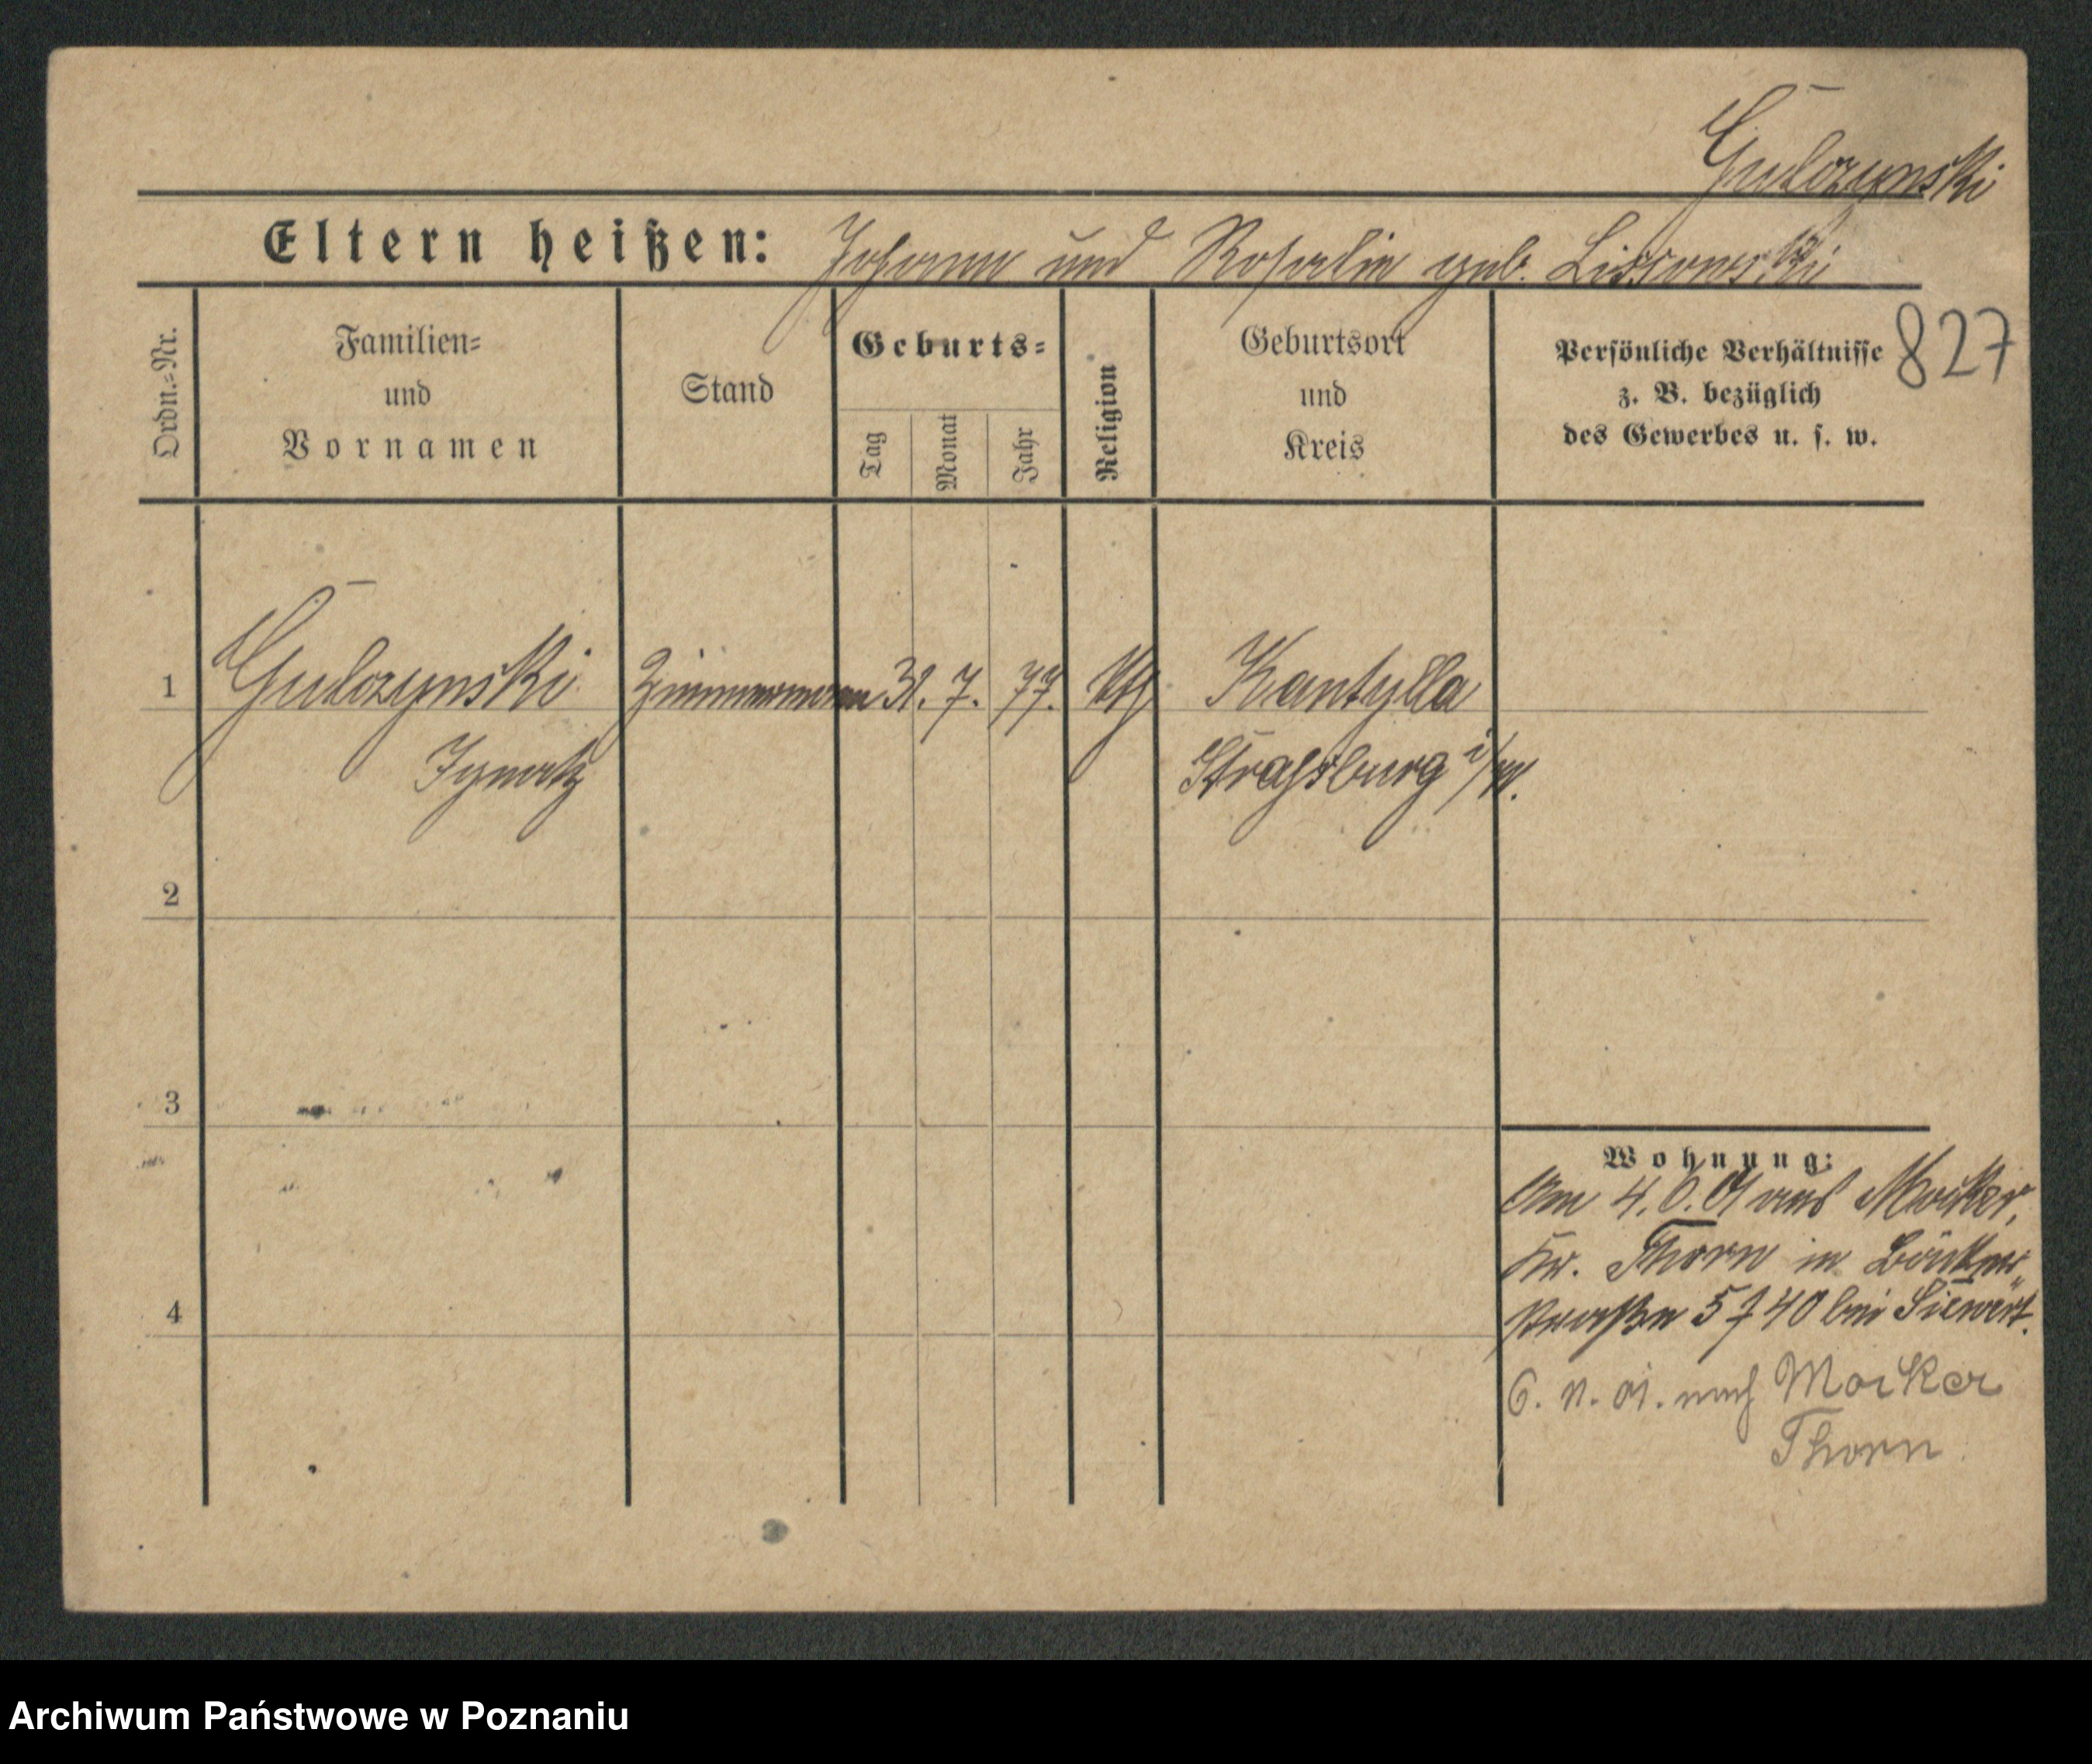 Gulczynski
Eltern heißen: Johann und Rosalie geb. Lissowski
827
Ordn.=Nr.
Familien=
und
Vornamen
Stand
Geburts=
Tag
Monat
Jahr
Religion
Geburtsort
und
Kreis
Persönliche Verhältnisse
z. B. bezüglich
des Gewerbes u. s. w.
1 Gulczynski Zimmermann 31. 7. 77. Kth Kantylla
Ignatz Strassburg i/W.
2
3
Wohnung:
Am 4.6.01 aus Mocker,
Kr. Thorn in Bäcker
4
straße 5 40 bei Siewert.
6. 11. 01. nach Mocker
Thorn
Archiwum Państwowe w Poznaniu